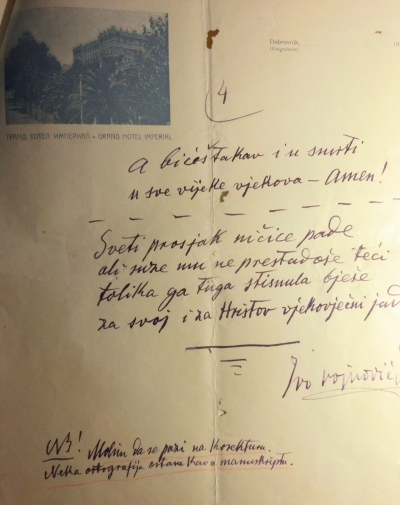 Dubrovnik,
(Yougoslavie)
ГРАНД ХОТЕЛ ИМПЕРИАЛ • GRAND HOTEL IMPERIAL
4
A bićeš takav i u smrti
u sve vijeke vjekova – Amen!
Sveti prosjak ničice pade
ali suze mu ne prestadoše teći
tolika ga tuga stisnula bješe
za svoj i za Hristov vjekovječni jad
Ivo Vojnović
NB! Molim da se pazi na Korekturu.
Neka ortografija ostane kao u manuskriptu.